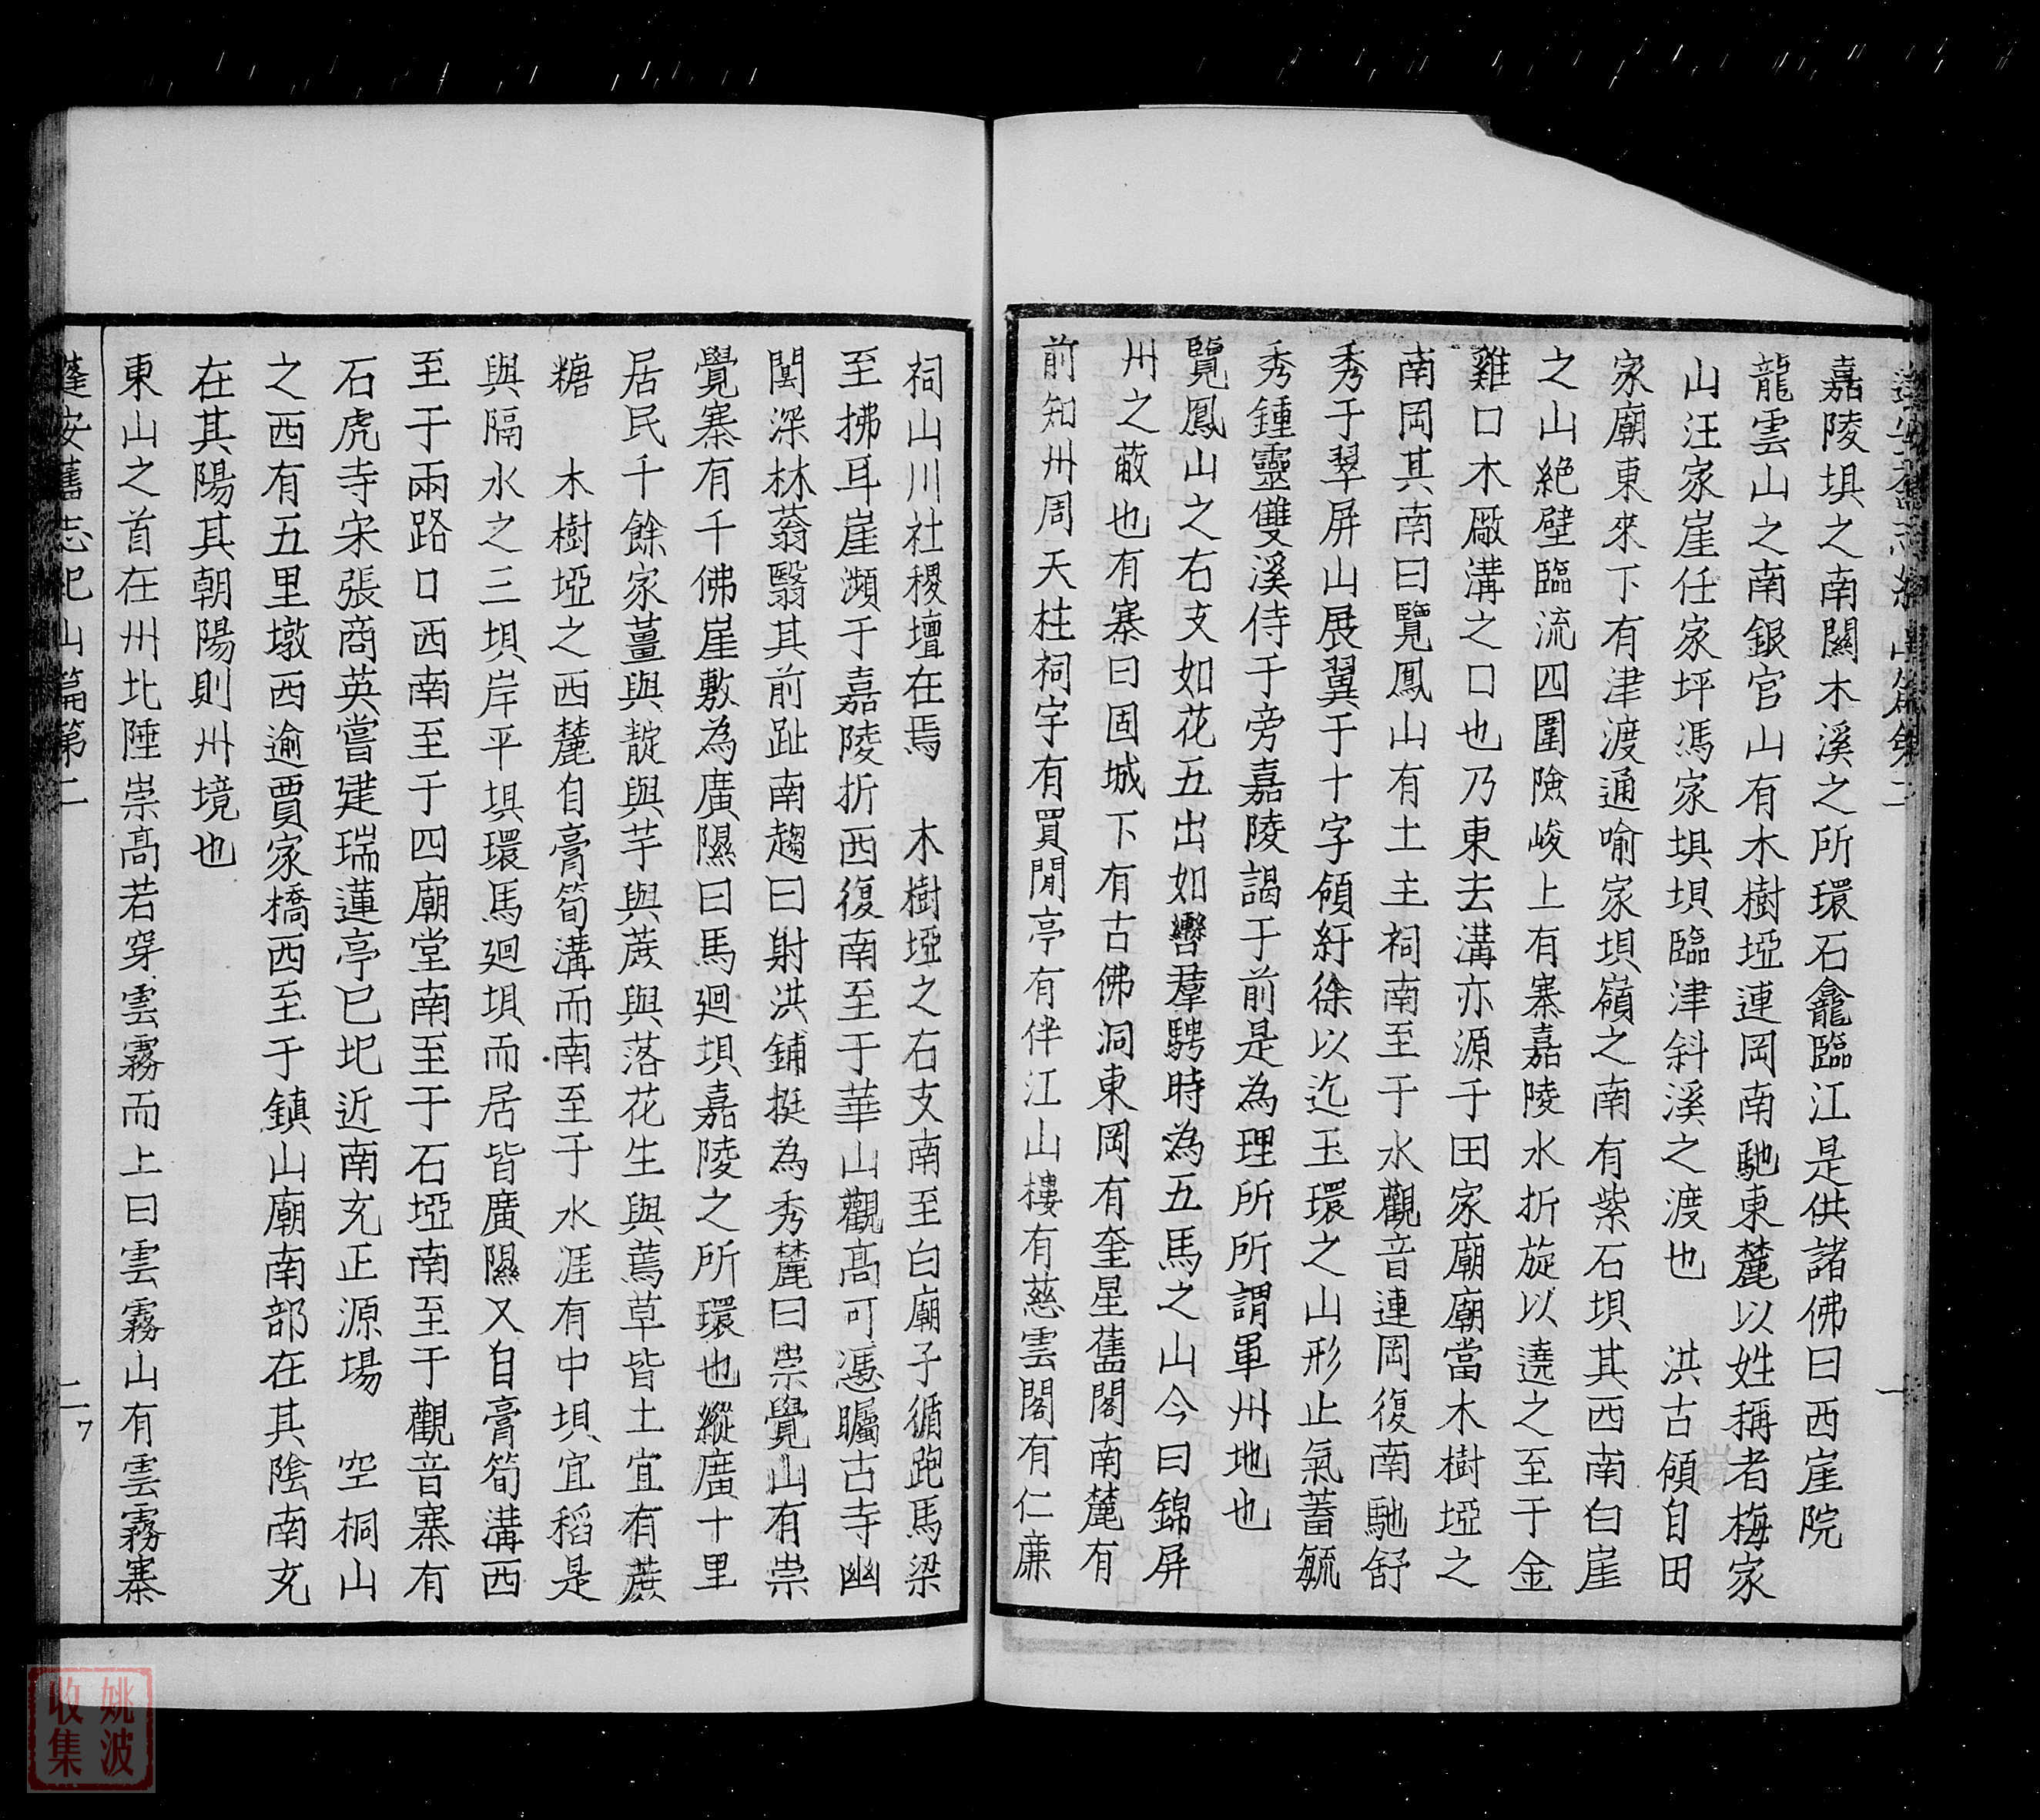 嘉陵垻之南關木溪之所環石龕臨江是供諸佛曰西崖院
龍雲山之南銀官山有木樹埡連岡南馳東麓以姓稱者梅家
山汪家崖任家坪馮家垻垻臨津斜溪之渡也　洪古領自田
家廟東來下有津渡通喻家垻嶺之南有紫石垻其西南白崖
之山絕壁臨流四圍險峻上有寨嘉陵水折旋以遶之至于金
雞口木廠溝之口也乃東去溝亦源于田家廟廟當木樹埡之
南岡其南曰覽鳳山有土主祠南至于水觀音連岡復南馳舒
秀于翠屏山展翼于十字領紆徐以迄玉環之山形止氣蓄毓
秀鍾靈雙溪侍于旁嘉陵謁于前是為理所所謂單州地也
覽鳳山之右支如花五出如轡羣騁時為五馬之山今曰錦屏
州之蔽也有寨曰固城下有古佛洞東岡有奎星舊閣南麓有
前知州周天柱祠宇有買閒亭有伴江山樓有慈雲閣有仁廉
祠山川社稷壇在焉　木樹埡之右支南至白廟子循跑馬梁
至拂耳崖瀕于嘉陵折西復南至于華山觀高可憑矚古寺幽
闃深林蓊翳其前趾南趨曰射洪鋪挺為秀麓曰崇覺山有崇
覺寨有千佛崖敷為廣隰曰馬廻垻嘉陵之所環也縱廣十里
居民千餘家薑與靛與芋與蔗與落花生與蔫草皆土宜有蔗
糖　木樹埡之西麓自膏筍溝而南至于水涯有中垻宜稻是
與隔水之三垻岸平垻環馬廻垻而居皆廣隰又自膏筍溝西
至于兩路口西南至于四廟堂南至于石埡南至于觀音寨有
石虎寺宋張商英嘗建瑞蓮亭已圮近南充正源場　空桐山
之西有五里墩西逾賈家橋西至于鎮山廟南部在其陰南充
在其陽其朝陽則州境也
東山之首在州北陲崇高若穿雲霧而上曰雲霧山有雲霧寨
蓬安舊志圮山篇第二
二
7
姚波
收集